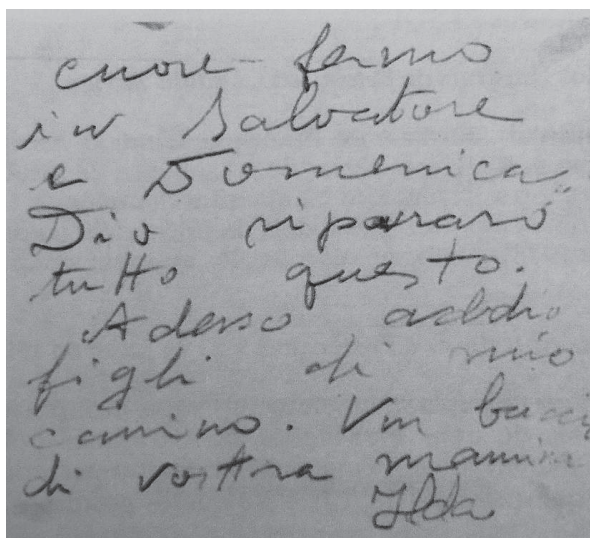 cuore fermo
in Salvatore
e Domenica
Dio ripararò
tutto questo.
Adesso addio
figli di mio
camino. Vm bacij
di vosttra mamma
Ilda